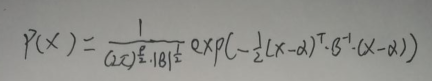 P(x) = \frac{1}{(2\pi)^{\frac{p}{2}} \cdot |B|^{\frac{1}{2}}} exp(-\frac{1}{2}(x-α)^T · B^{-1} · (x-α))